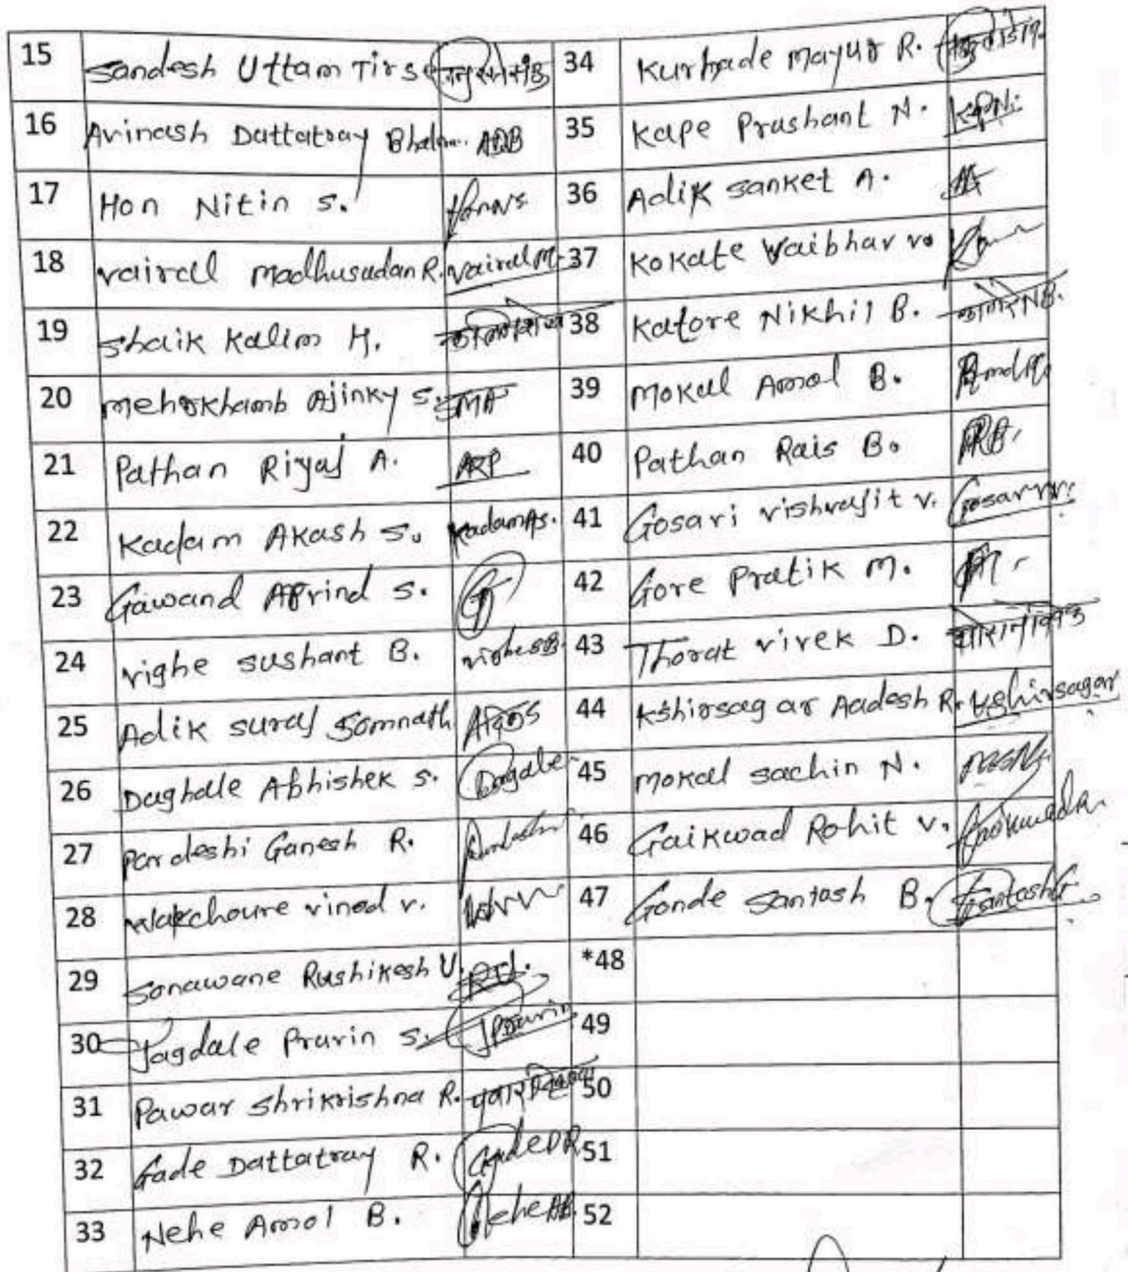 15 Sandesh Uttam 34 Kurhade Mayur R.
16 Avinash Dattatray ADB 35 Kape Prashant N. KPN
17 Hon Nitin S. HonNS 36 Adik Sanket A.
18 vairal Madhusudan R. vairalM 37 Kokate Vaibhav
19 Shaik Kalim H. 38 Katore Nikhil B.
20 Ajinky S. 39 Mokal Amol B.
21 Pathan Riyaj A. ARP 40 Pathan Rais B.
22 Kadam Akash S. KadamAs. 41 Gosari vishvajit v.
23 Gawand S. 42 Gore Pratik M.
24 vighe sushant B. 43 Thorat vivek D.
25 Adik suraj Somnath 44 Kshirsagar Aadesh R. Kshirsagar
26 Daghale Abhishek S. Dagale 45 Mokal sachin N.
27 Pardeshi Ganesh R. 46 Gaikwad Rohit v.
28 Wakchoure vinod v. 47 Gonde Santosh B.
29 Sonawane Rushikesh U. *48
30 Jagdale Pravin S. 49
31 Pawar Shrikrishna R. 50
32 Gade Dattatray R. GadeDR 51
33 Nehe Amol B. NeheAB 52